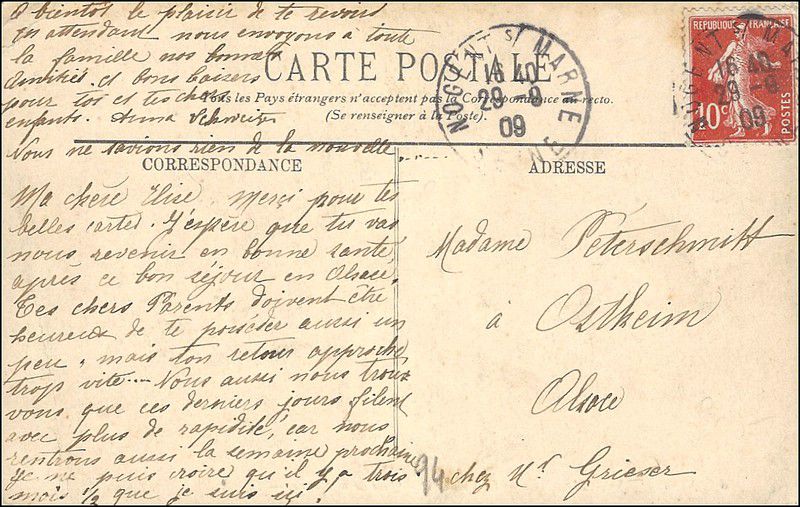 A bientôt le plaisir de te revoir
En attendant nous envoyons à toute
la famille nos bonnes
amitiés et bons baisers
pour toi et tes chers
enfants. Anna Schweitzer
Vous ne savions rien de la nouvelle
CARTE POSTALE
Tous les Pays étrangers n'acceptent pas la Correspondance au recto.
(Se renseigner à la Poste).
NOGENT St MARNE
16 40
29 - 8
09
REPUBLIQUE FRANÇAISE
10c
POSTES
NOGENT St MA
16 40
29 - 8
09
CORRESPONDANCE
Ma chère Elise, Merci pour tes
belles cartes. J'espère que tu vas
nous revenir en bonne santé
après ce bon séjour en Alsace.
Tes chers Parents doivent être
heureux de te posséder aussi un
peu, mais ton retour approche
trop vite.... Nous aussi nous trou-
vons, que ces derniers jours filent
avec plus de rapidité, car nous
rentrons aussi la semaine prochaine
Je ne puis croire qu'il y a trois
mois ½ que je suis ici.
ADRESSE
Madame Peterschmitt
à Ostheim
Alsace
94 chez Mr Grieser